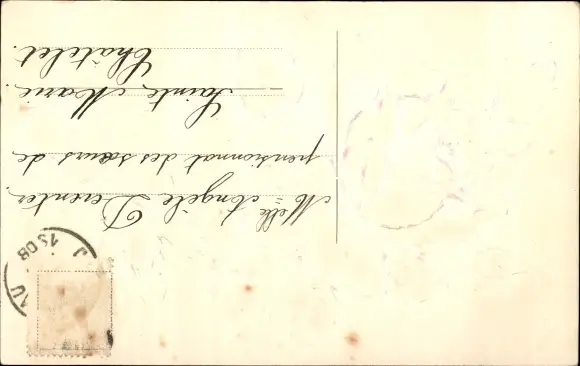 Melle Angèle Deventer.
pensionnat des sœurs de
Sainte Marie
Châtelet.
1908